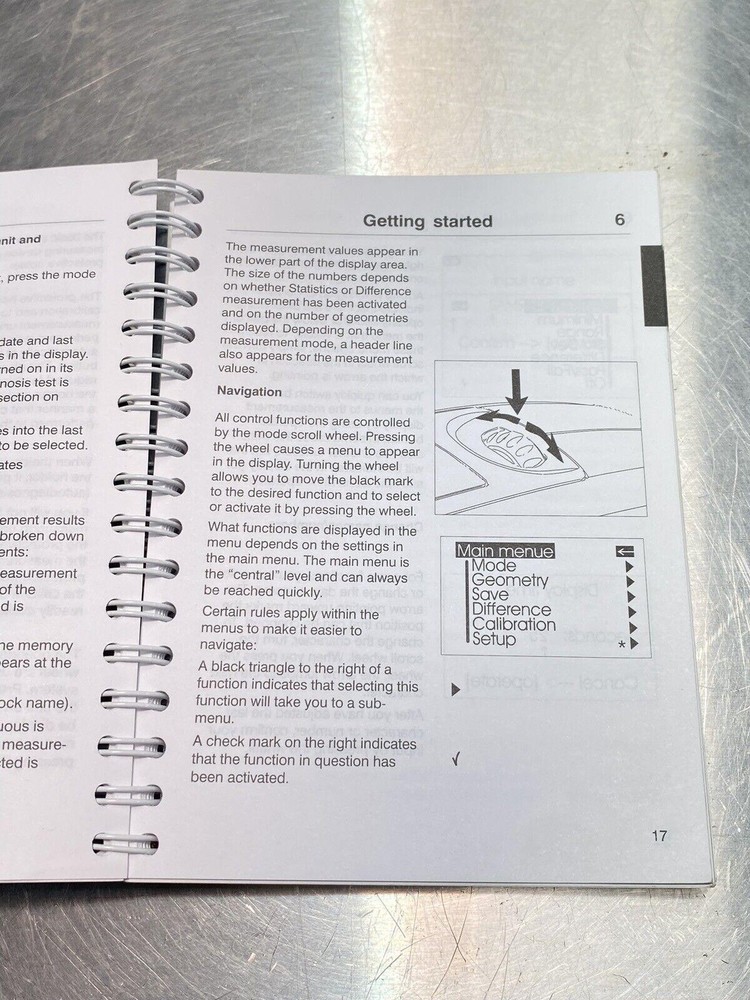 nit and
, press the mode
date and last
s in the display.
rned on in its
nosis test is
section on
es into the last
to be selected.
ates
ement results
broken down
ents:
easurement
of the
d is
he memory
ears at the
ock name).
uous is
measure-
ted is
Getting started 6
The measurement values appear in
the lower part of the display area.
The size of the numbers depends
on whether Statistics or Difference
measurement has been activated
and on the number of geometries
displayed. Depending on the
measurement mode, a header line
also appears for the measurement
values.
Navigation
All control functions are controlled
by the mode scroll wheel. Pressing
the wheel causes a menu to appear
in the display. Turning the wheel
allows you to move the black mark
to the desired function and to select
or activate it by pressing the wheel.
What functions are displayed in the
menu depends on the settings in
the main menu. The main menu is
the “central” level and can always
be reached quickly.
Certain rules apply within the
menus to make it easier to
navigate:
A black triangle to the right of a
function indicates that selecting this
function will take you to a sub-
menu.
A check mark on the right indicates
that the function in question has
been activated.
Main menue
Mode
Geometry
Save
Difference
Calibration
Setup *
17